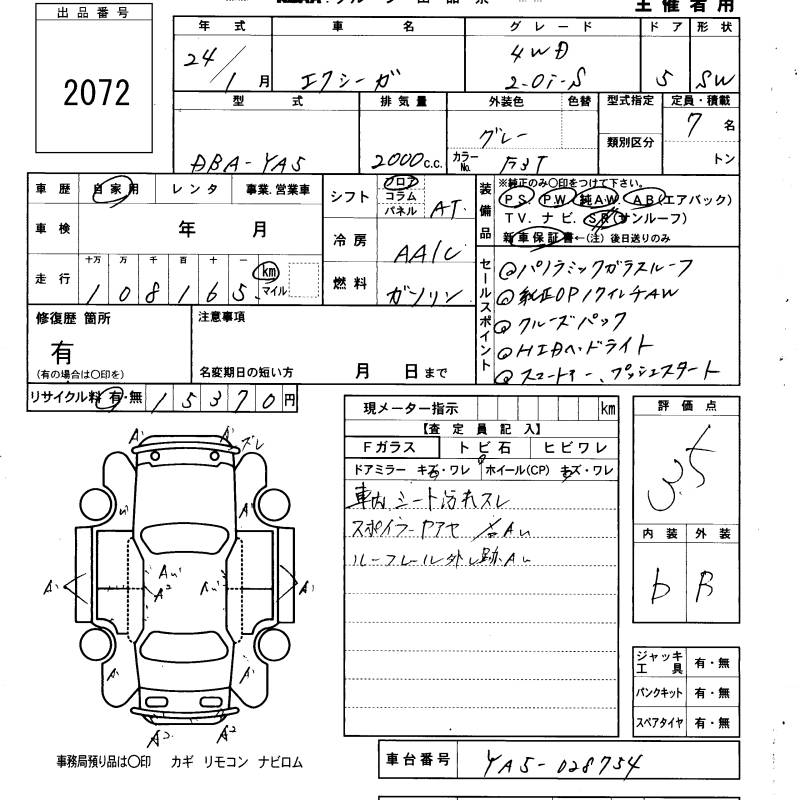 出品番号
2072
主催者用
年式 車名 グレード ドア 形状
24/1月 エクシーガ 4WD 2.0i-S 5 SW
型式 排気量 外装色 色替 型式指定 定員・積載
DBA-YA5 2000c.c. グレー カラーNo. F3T 類別区分 7名
トン
車歴 自家用 レンタ 事業.営業車
車検 年 月
走行 十万 万 千 百 十 一
108165 km マイル
シフト フロア コラム パネル AT
冷房 AA/C
燃料 ガソリン
装備品
※純正のみ〇印をつけて下さい。
PS PW 純AW AB(エアバック)
TV.ナビ.SR(サンルーフ)
新車保証書←(注)後日送りのみ
セールスポイント
パノラミックガラスルーフ
純正OP17インチAW
クルーズパック
HIDヘッドライト
スマートキー、プッシュスタート
修復歴 箇所
有
(有の場合は〇印を)
注意事項
名変期日の短い方 月 日まで
リサイクル料 有・無 15370円
現メーター指示 km
【査定員記入】
Fガラス トビ石 ヒビワレ
ドアミラー キズ・ワレ ホイール(CP) キズ・ワレ
車内シート汚れスレ
ルーフレール外し跡
評価点
3.5
内装 外装
b B
ジャッキ工具 有・無
パンクキット 有・無
スペアタイヤ 有・無
事務局預り品は〇印 カギ リモコン ナビロム
車台番号 YA5-028754